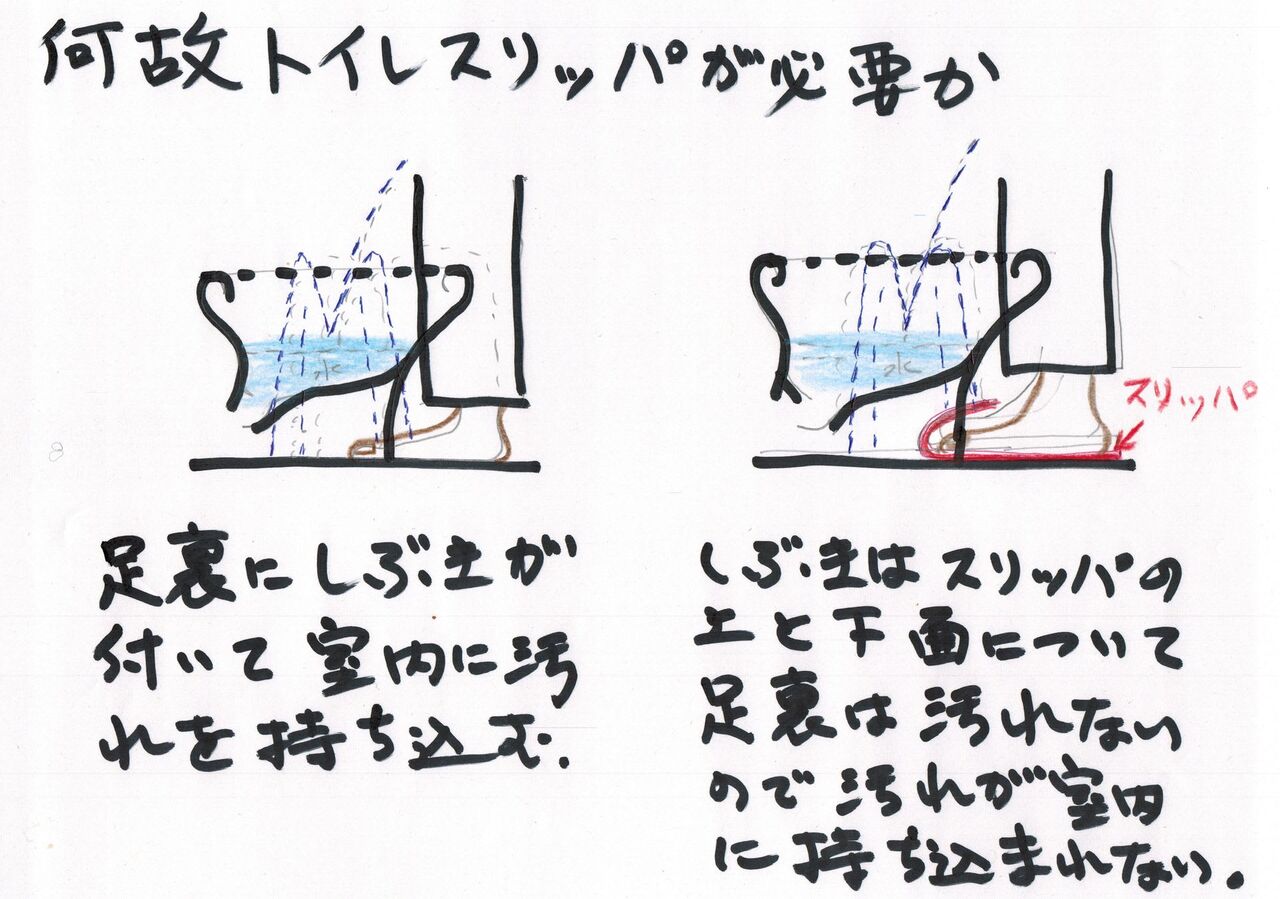 何故トイレスリッパが必要か
水
水
スリッパ
足裏にしぶきが
付いて室内に汚
れを持ち込む.
しぶきはスリッパの
上と下面について
足裏は汚れない
ので汚れが室内
に持ち込まれない。